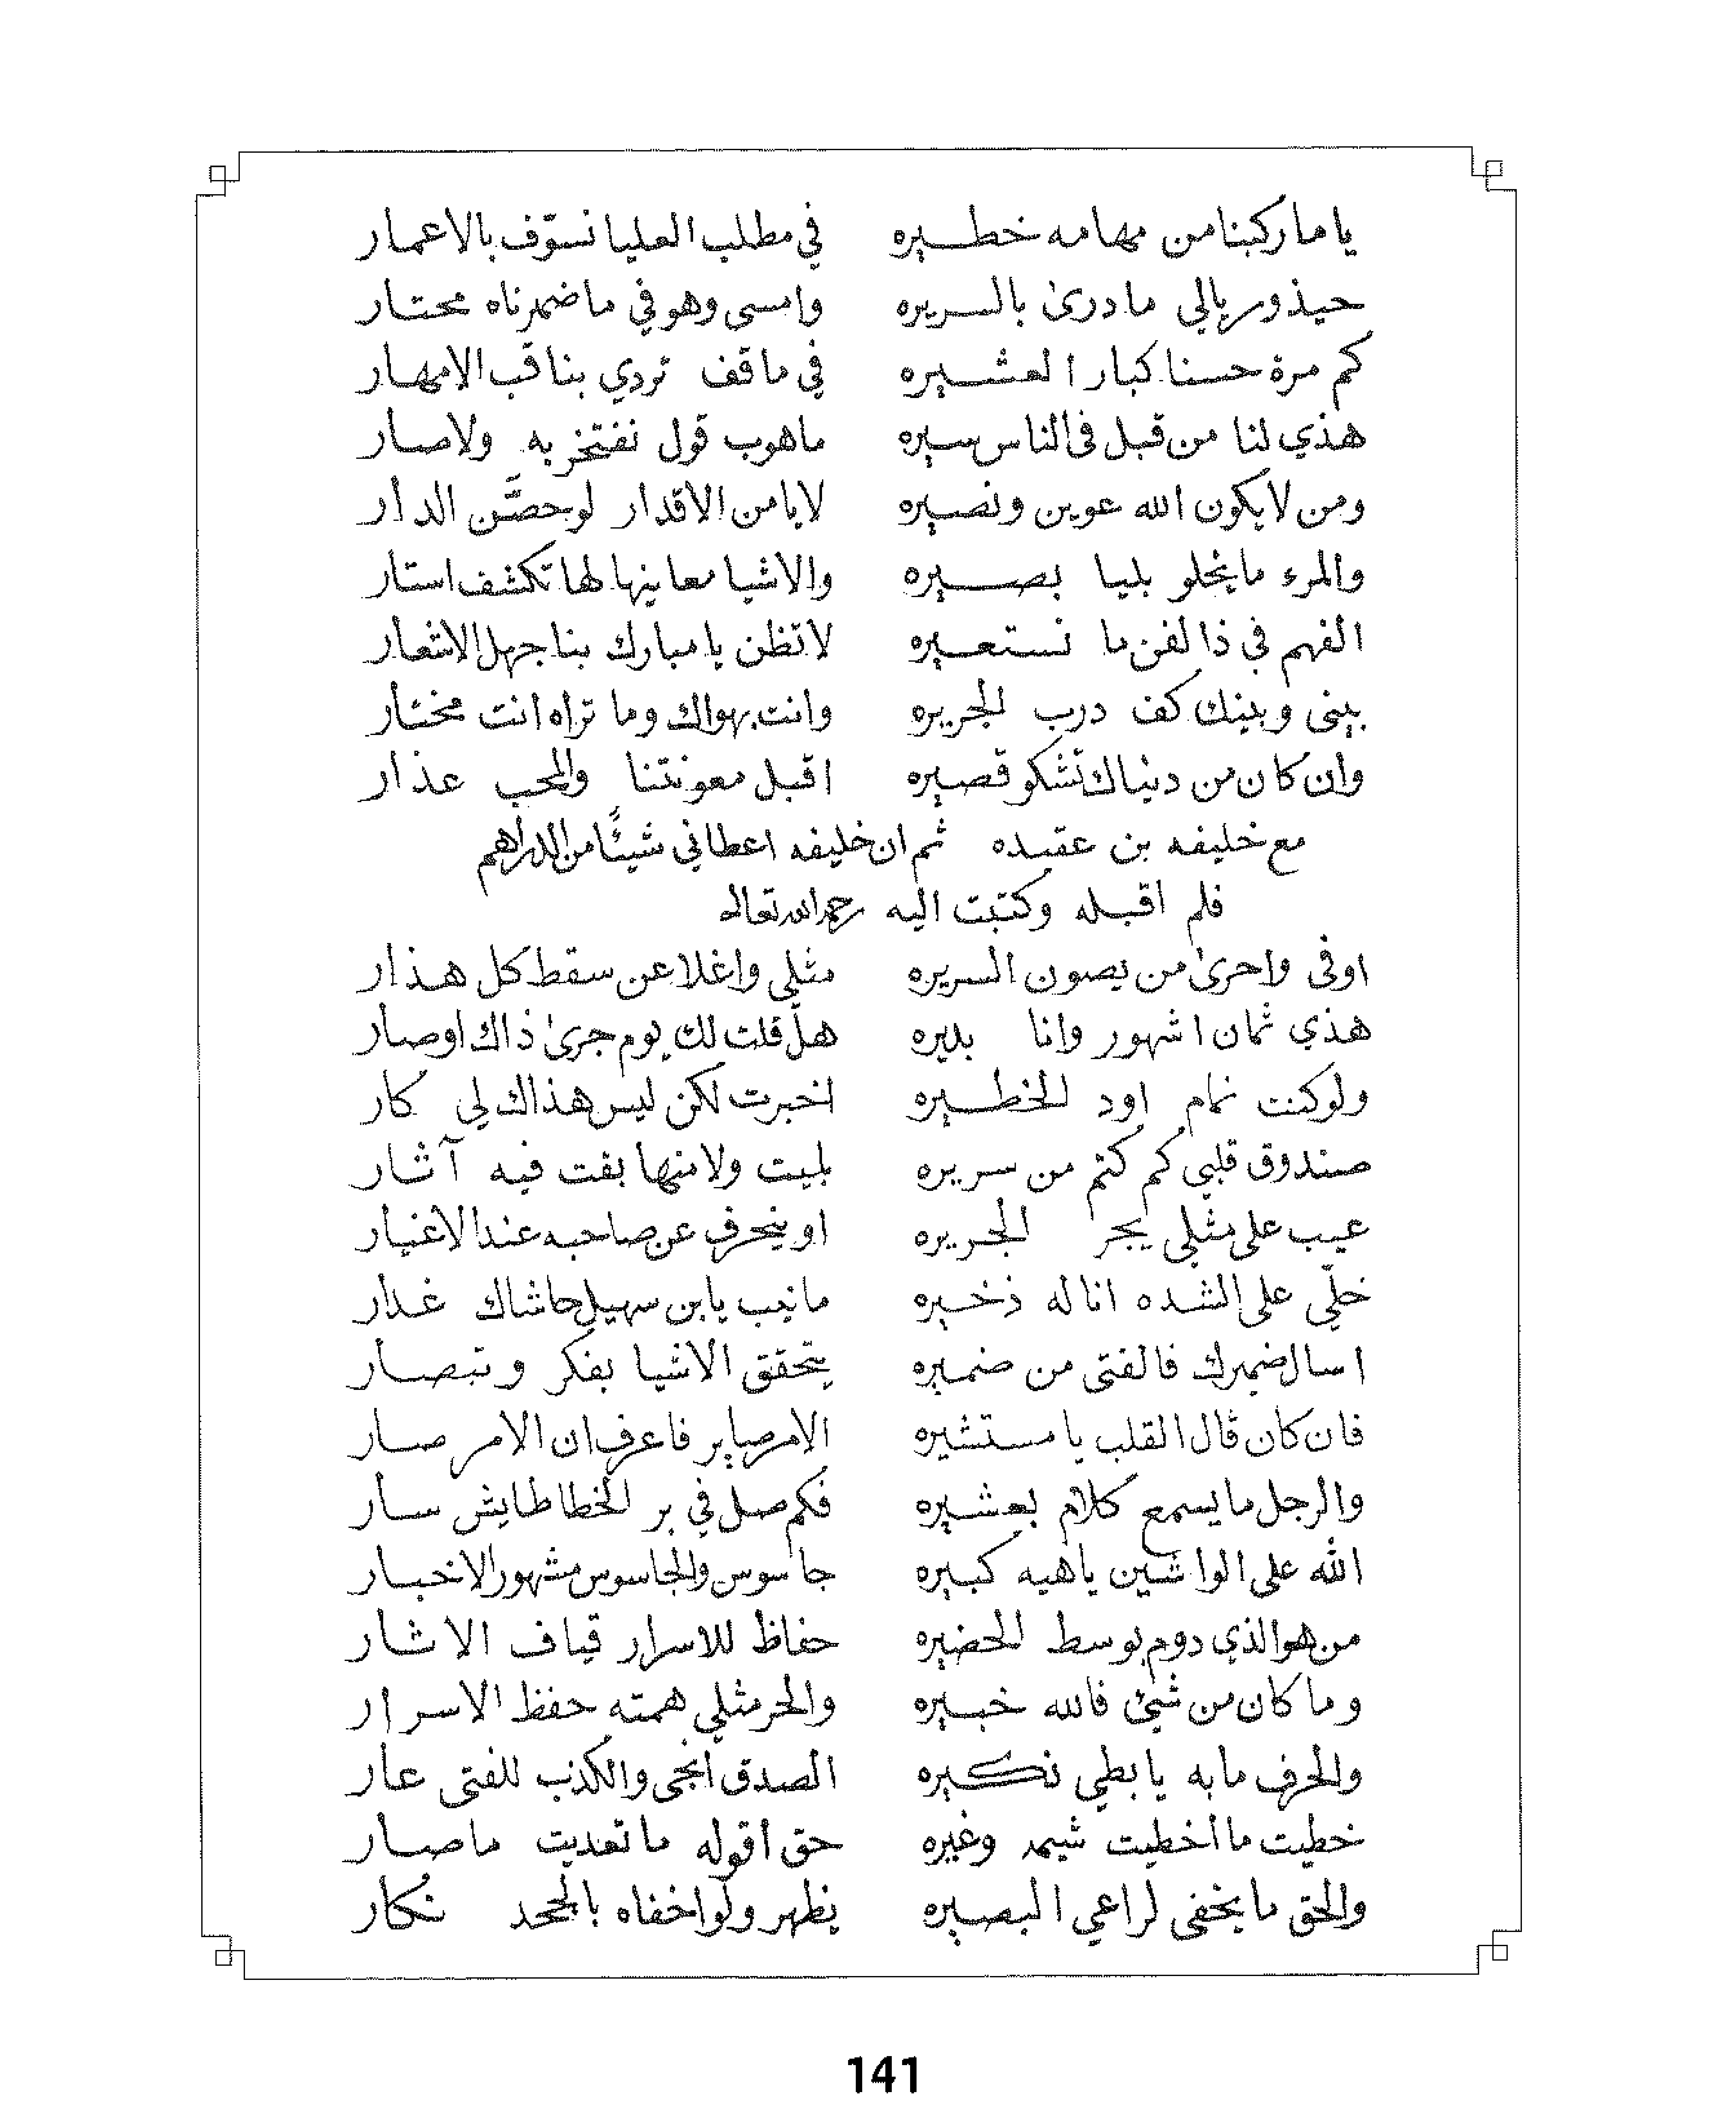 ياما ركبنا من مهامه خطيره في مطلب العليا نسوّف بالاعمار
حيذور يالي مادرىٰ بالسريره وامسى وهو في ماضمرناه محتار
كم مرة حسنا كبار العشيره في ماقف تردي بنا قب الامهار
هذي لنا من قبل فى الناس سيره ماهوب قول نفتخر به ولاصار
ومن لايكون الله عوين ونصيره لايامن الاقدار لوحصَّن الدار
والمرء مايخلو بليا بصيره والاشيا معانيها لها تكشف استار
الفهم في ذا لفن ما نستعيره لاتظن يا مبارك بنا جهل الاشعار
بينى وبينك كف درب الجريره وانت بهواك وما تراه انت مختار
وان كان من دنياك تشكو قصيره اقبل معونتنا والمحب عذار
مع خليفه بن عقيده ثم ان خليفه اعطاني شيئًا من الدراهم
فلم اقبله وكتبت اليه رحمه الله تعالى
اوفى واحرىٰ من يصون السريره مثلي واغلا عن سقط كل هذار
هذي ثمان اشهور وانا بديره هل قلت لك يوم جرىٰ ذاك اوصار
ولوكنت نمام اود الخطيره اخبرت لكن ليس هذاك لي كار
صندوق قلبي كم كتم من سريره بليت ولامنها بقت فيه آثار
عيب على مثلي يجر الجريره او ينحرف عن صاحبه عند الاغيار
خلّي على الشده انا له ذخيره مانيب يابن سهيل حاشاك غدار
اسال ضميرك فالفتى من ضميره يتحقق الاشيا بفكر وتبصار
فان كان قال القلب يا مستشيره الامر صاير فاعرف ان الامر صار
والرجل مايسمع كلام بعشيره فكم صل في بر الخطا طايش سار
الله على الواشين ياهيه كبيره جاسوس والجاسوس مشهور الاخبار
من هو الذي دوم بوسط الحضيره حفاظ للاسرار قياف الاشار
وماكان من شيئ فالله خبيره والحر مثلي همته حفظ الاسرار
والحرف مابه يا بطي نكيره الصدق أنجى والكذب للفتى عار
خطيت ما أخطيت شيمه وغيره حق أقوله ما تعديت ماصار
والحق مايخفى لراعي البصيره يظهر ولو اخفاه بالجحد نكار
141